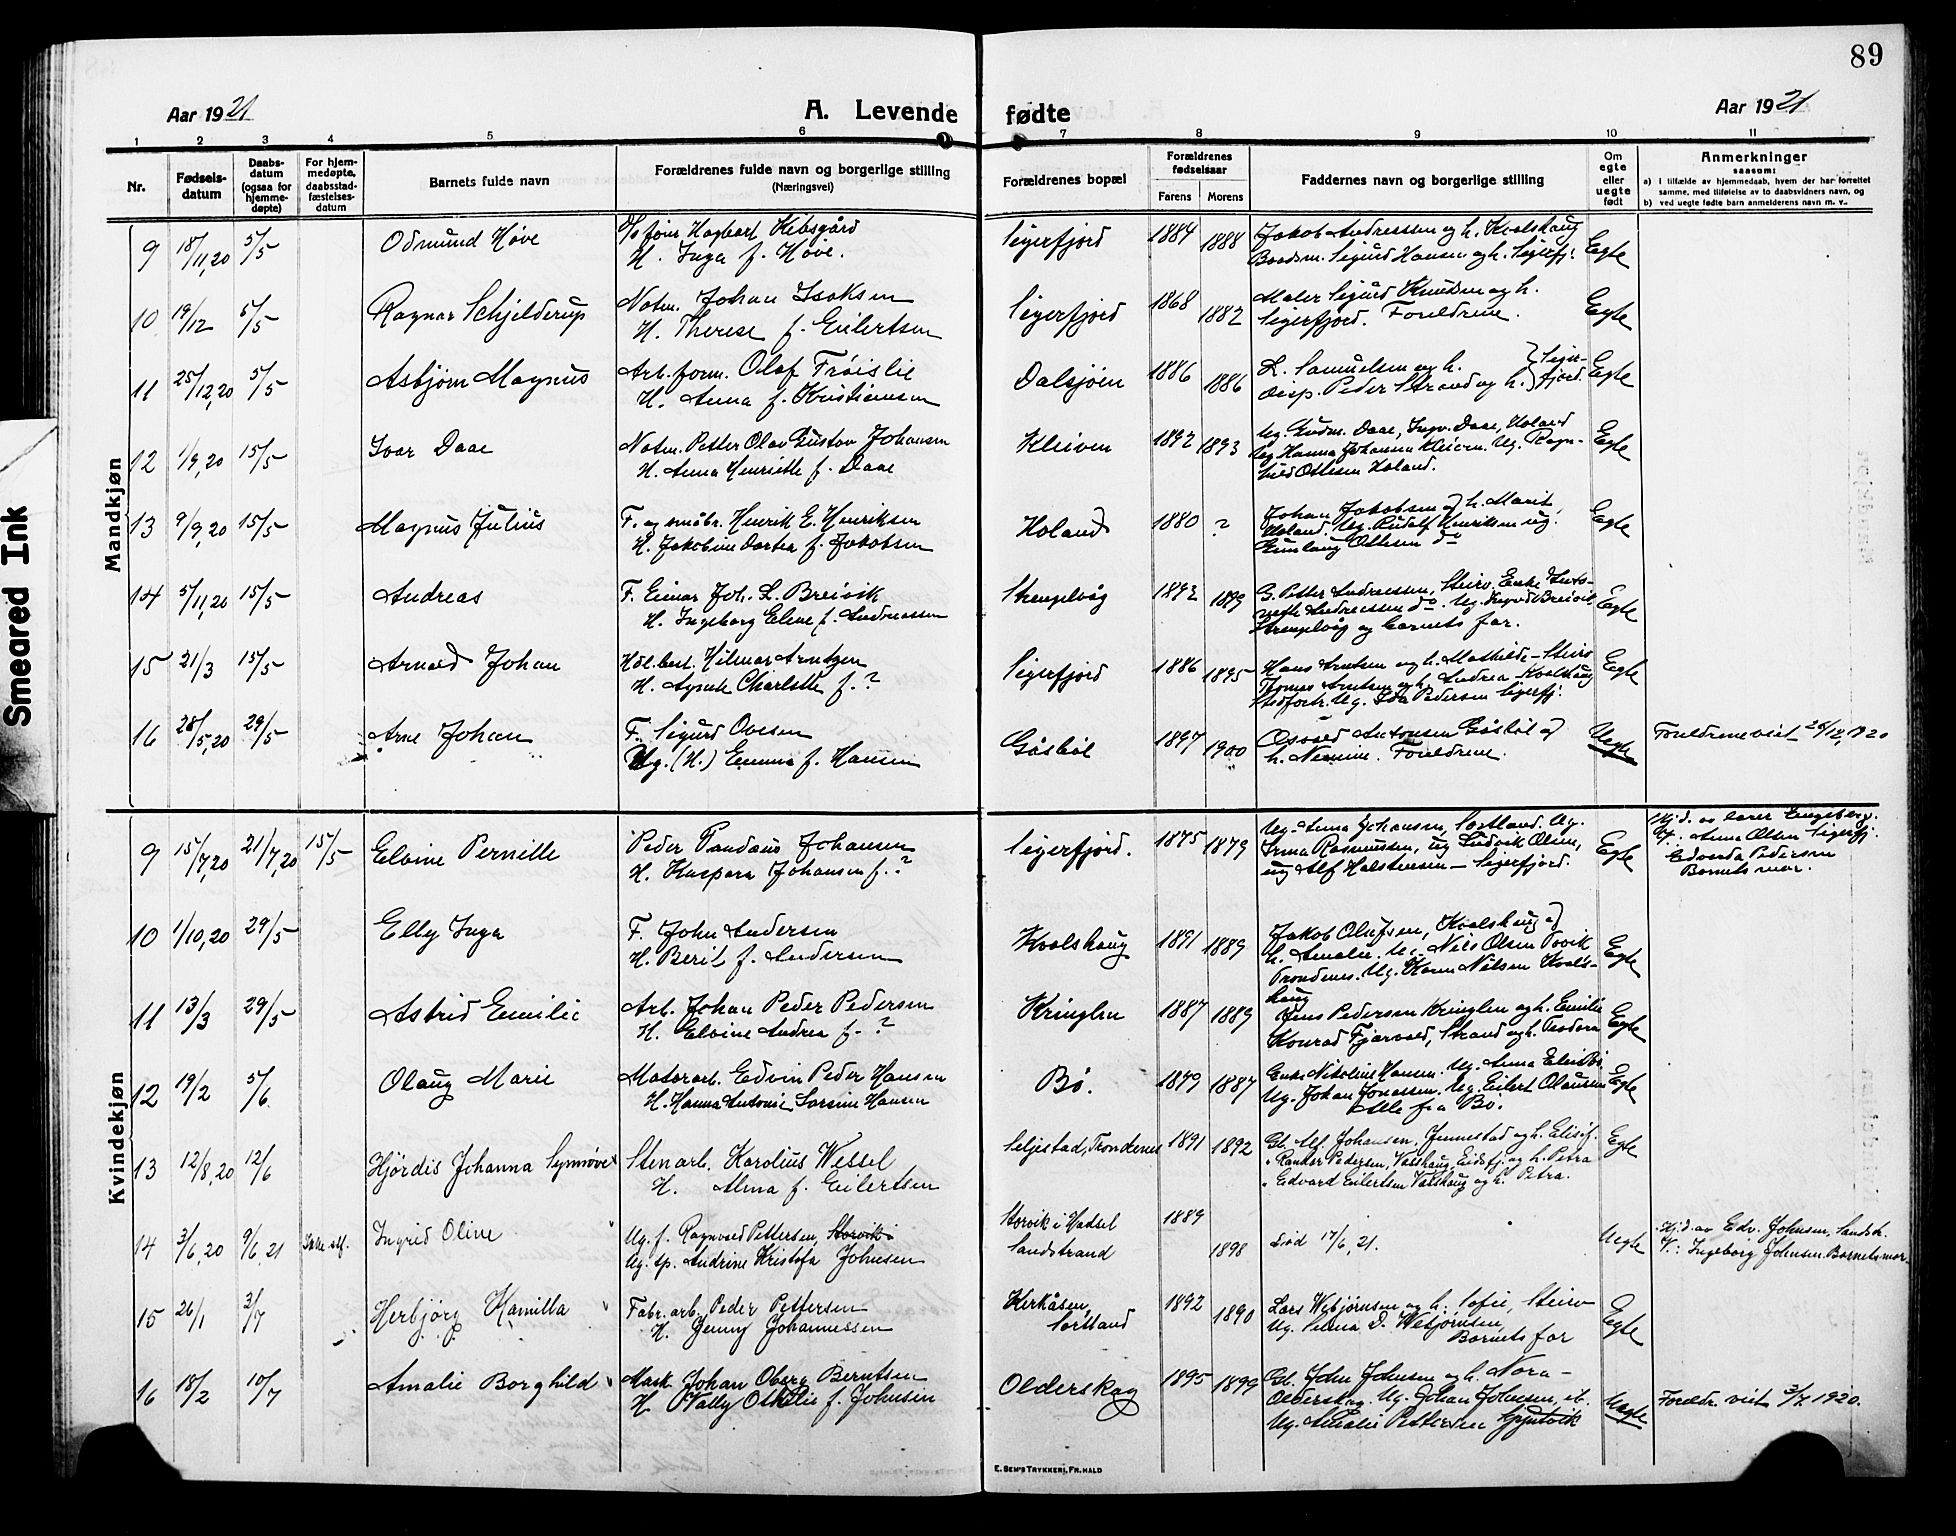 89
Aar 1921 A. Levende fødte Aar 1921
1 2 3 4 5 6 7 8 9 10 11
Nr. Fødselsdatum Daabsdatum (ogsaa for hjemmedøpte) For hjemmedøpte, daabsstadfæstelsesdatum Barnets fulde navn Forældrenes fulde navn og borgerlige stilling (Næringsvei) Forældrenes bopæl Forældrenes fødselsaar Farens Morens Faddernes navn og borgerlige stilling Om egte eller uegte født Anmerkninger saasom:
a) I tilfælde av hjemmedaab, hvem der har forrettet samme, med tilføielse av to daabsvidners navn, og
b) ved uegte fødte barn anmelderens navn m. v..
Smeared Ink
Mandkjøn
9 18/11,20 5/5 Odmund Høve Hagbart Hebsgård Sigerfjord 1884 1888 Jakob Andreassen og h. Kvalshaug Egte
H. Inga f. Høve. Baadsm. Sigurd Hansen og h. Sigerfj.
10 19/12 5/5 Ragnar Schjelderup Notm. Johan Isaksen Sigerfjord 1868 1882 Maler Sigurd Knudsen og h. Egte
H. Therese f. Eilertsen Sigerfjord. Foreldrene.
11 25/12,20 5/5 Asbjørn Magnus Arb.form. Olaf Frøislie Dalsjøen 1886 1886 L. Samuelsen og h. } Siger- Egte
H. Anna f. Kristiansen Disp. Peder Strand og h. } fjord.
12 1/9,20 15/5 Ivar Daae Notm. Petter Olav Gustav Johansen Kleiven 1892 1893 Ug. Gudm. Daae, Ingv. Daae, Holand Egte
H. Anna Henriette f. Daae Ug. Hanna Johansen Kleiven. Ug. Ragn-
hild Ottesen Holand.
13 9/9,20 15/5 Magnus Julius F. og småbr. Henrik E. Henriksen Holand 1880 ? Johan Jakobsen og h. Marit, Egte
H. Jakobine Dortea f. Jakobsen Holand. Ug. Rudolf Henriksen ug.
Gunlaug Ottesen do
14 5/11,20 15/5 Andreas F. Einar Joh. L. Breivik Strengelvåg 1893 1899 G. Petter Andreassen, Steiro. Enke Egte
H. Ingeborg Elene f. Andreassen Andreassen do. Ug. Breivik
Strengelvåg og barnets far.
15 21/3 15/5 Arnold Johan Hilmar Arntzen Sigerfjord 1886 1895 Hans Arntsen og h. Mathilde – Steiro Egte
H. Agnete Charlotte f. ? Thomas Arntsen og h. Andrea – Kvalshaug
Ug. Ida Pedersen Sigerfj.
16 28/5,20 29/5 Arne Johan F. Sigurd Ovesen Gåsbøl 1897 1900 Osvald Antonsen Gåsbøl og Uegte Foreldrene viet 26/12,1920
Ug. (H.) Emma f. Hansen h. Nemine. Foreldrene.
Kvindekjøn
9 15/7,20 21/7,20 15/5 Elvine Pernille Peder Pandæus Johansen Sigerfjord. 1875 1879 Ug. Anna Johansen, Sortland. Ug. Egte Hj.d. av lærer Engeberg.
H. Kaspara Johansen f. ? Irma Rasmussen, ug. Ludvik Olsen, Anna Olsen Sigerfj.
ug Alf Halstensen – Sigerfjord. Edvarda Pedersen
Barnets mor.
10 1/10,20 29/5 Elly Inga F. John Andersen Kvalshaug 1891 1889 Jakob Olufsen, Kvalshaug og Egte
H. Berit f. Andersen h. Amalie. Ug. Nils Olsen
Trondenes. Ug. Nilsen Kvals-
haug
11 13/3 29/5 Astrid Emilie Arb. Johan Peder Pedersen Kringlen 1887 1889 Jens Pedersen Kringlen og h. Emilie Egte
H. Elvine Andrea f. ? Konrad Fjærvold, Strand og h. Teodora
12 19/2 5/6 Olaug Marie Motorarb. Edvin Peder Hansen Bø. 1879 1887 Enke Nikoline Hansen. Ug. Anna Egte
H. Hanna Antonie Sarsine Hansen Ug. Johan Jonassen. Ug. Eilert Olaussen
Alle fra Bø.
13 12/8,20 12/6 Hjørdis Johanna Synnøve Stenarb. Karolius Wessel Seljestad, Trondenes 1891 1892 Gb. Alf. Johansen, Jennestad og h. Elisif. Egte
H. Alma f. Eilertsen " Pedersen, Valshaug, Eidsfj. og h. Petra
" Edvard Eilertsen Valshaug og h. Petra.
14 3/6,20 9/6,21 Ingrid Oline Ug. f. Ragnvald Pettersen, Storvik Storvik i Hadsel 1889 Død 17/6,21. Uegte Hj.d. av Edv. Johnsen, Sandstr.
Ug. tp. Andrine Kristofa Johnsen Sandstrand 1898 V.: Ingeborg Johnsen. Barnets mor.
15 26/1 3/7 Herbjørg Kamilla Fabr.arb. Peder Pettersen Kirkåsen, 1892 1890 Lars Webjørnsen og h. Sofie, Steiro Egte
H. Jenny Johannessen Sortland Ug. Selma D. Webjørnsen,
Barnets far
16 18/2 10/7 Amalie Borghild Mask. Johan Oberg Berntsen Olderskog 1895 1899 Gb. John Johnsen og h. Nora – Uegte Foreldr. viet 3/7 1920.
H Wally Othelie f. Johnsen Olderskog. Ug. Johan Johnsen, ib.
Ug. Amalie Pettersen
E. Sem's Trykkeri, Fr.hald